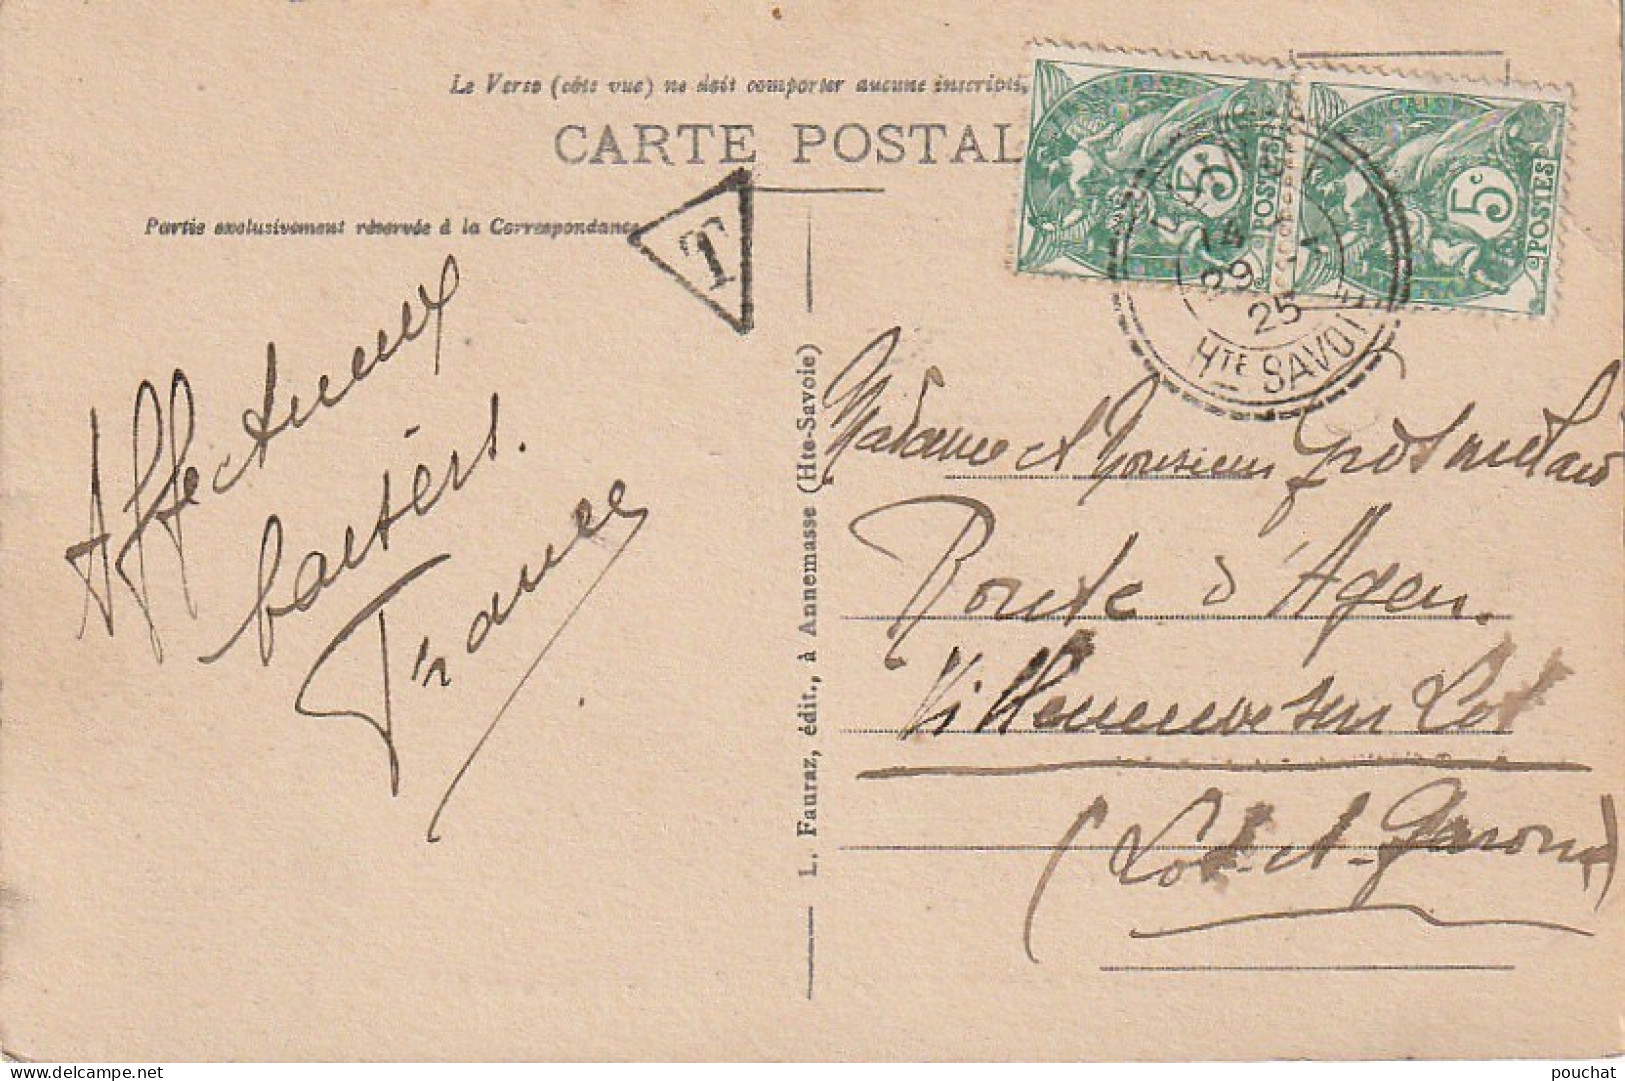 Le Verso (côté vue) ne doit comporter aucune inscripti
CARTE POSTAL
Partie exclusivement réservée à la Correspondance
T
5c POSTES
5c POSTES
25
Hte SAVOI
Affectueux
baisers.
France
L. Fauraz, édit., à Annemasse (Hte-Savoie)
Madame et Monsieur
Route d'Agen.
Villeneuve sur Lot
(Lot-et-Garonne)
pouchat